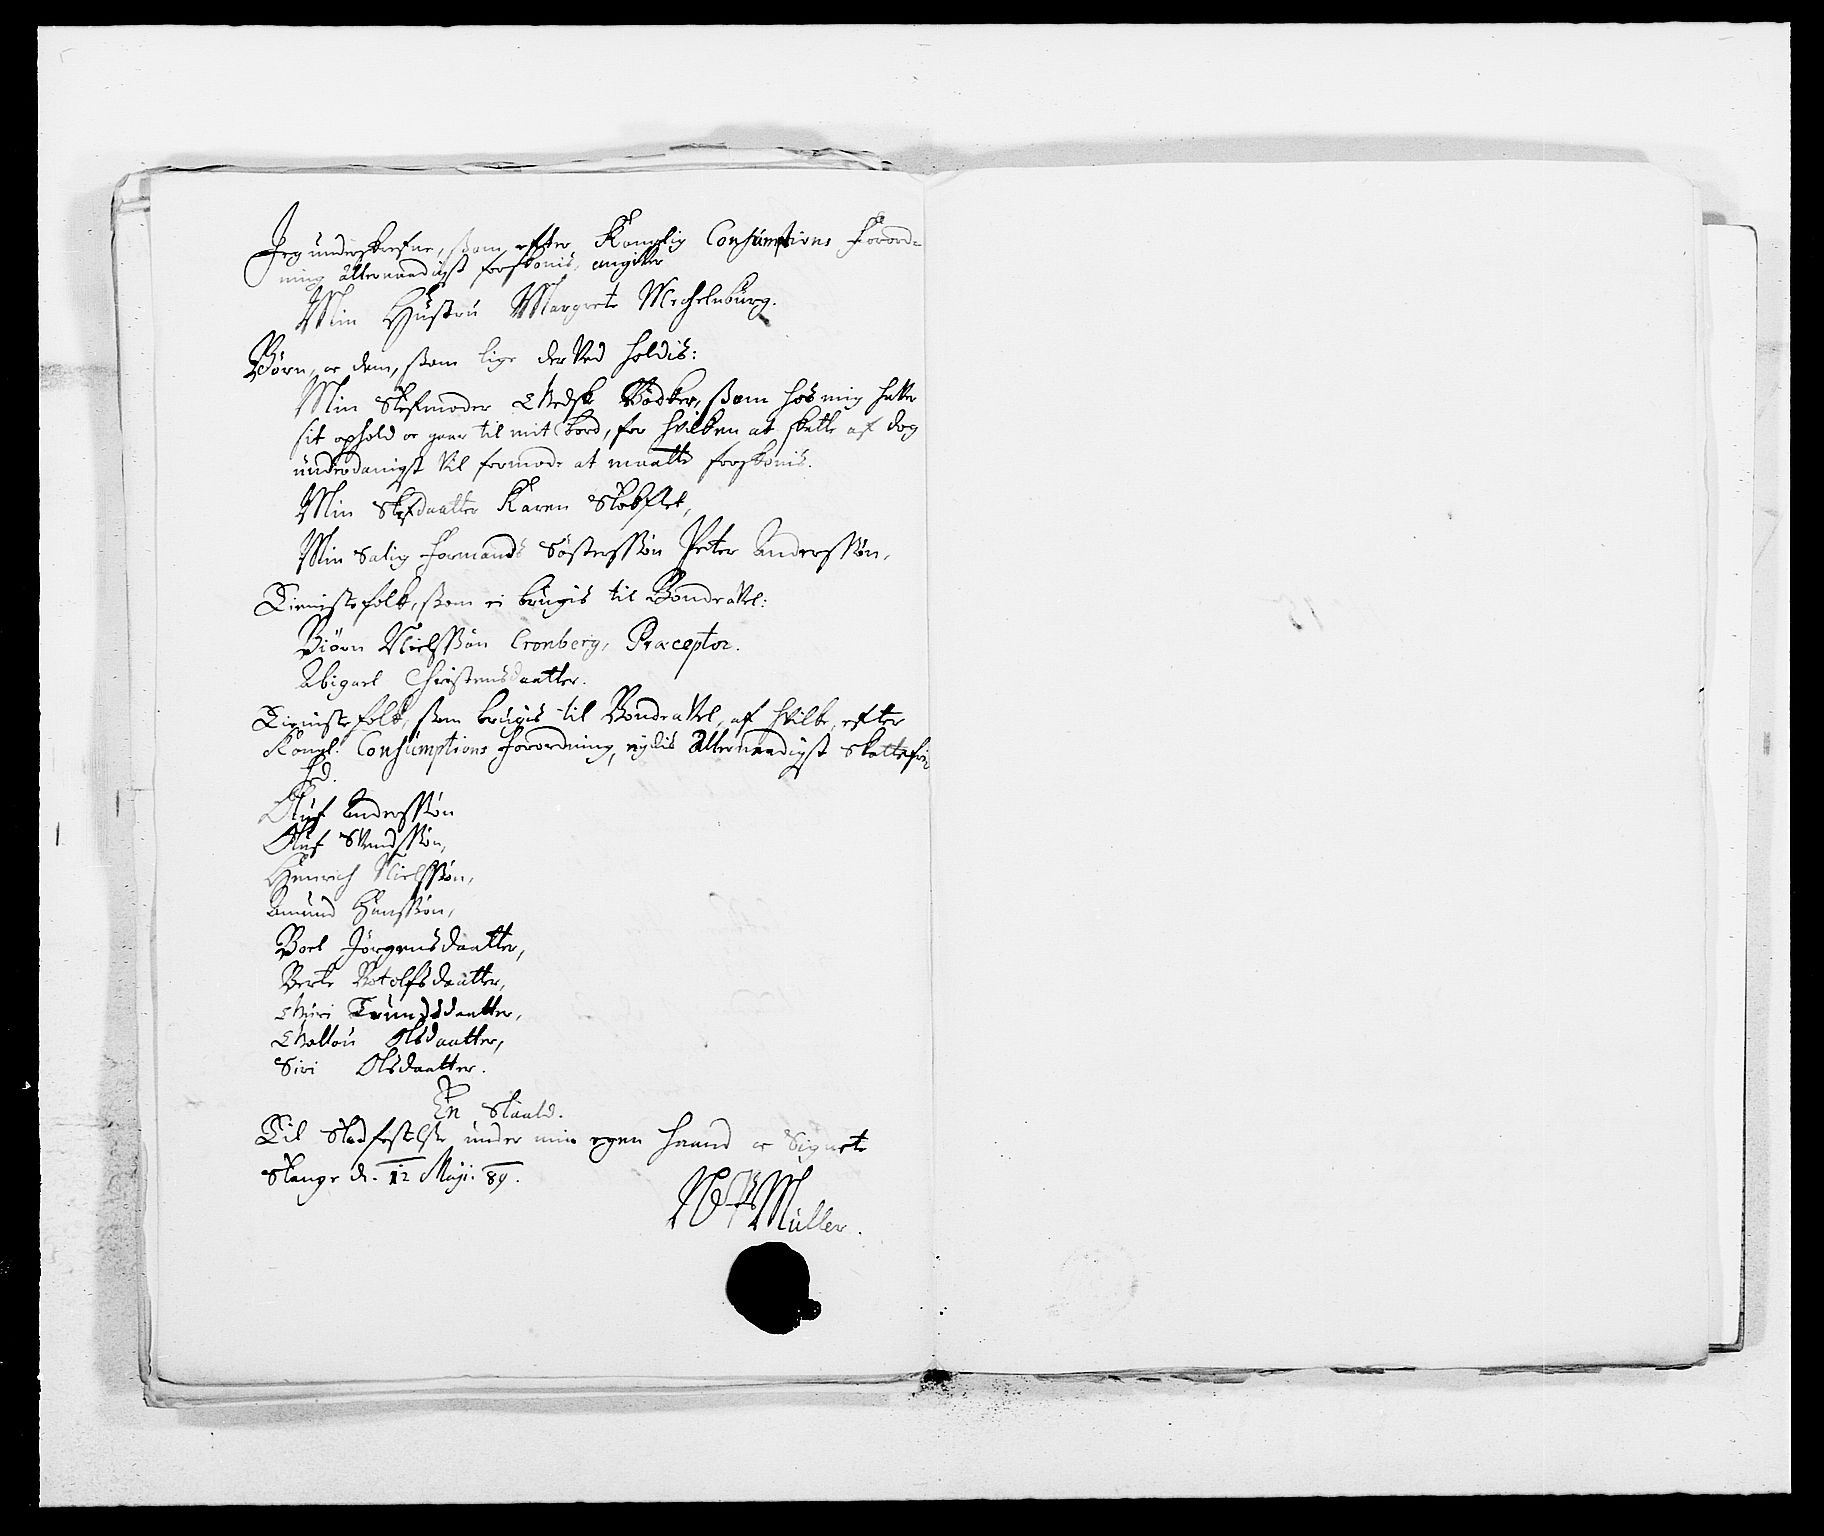 Jeg underskrefne, ßom, efter Konglig Consumptions Forord-
ning allernaadigst forskonis, angiver
Min Hustru Margrete Mechelnburg.
Børn, oc dem, ßom lige der ved holdis:
Min Stefmoder Medsk Bødker, ßom hos mig haver
sit ophold oc gaar til mit bord, for hvilken at skatte af dog
underdanigst vil formode at maatte forskonis.
Min Stefdaatter Karen
Min Salig Formands Søsterssøn Peter Anderssøn,
Tienistefolk, ßom ei brugis til Bondeavel:
Biørn Nielssøn Cronberg, Præceptor.
Abigael Christensdaatter.
Tienistefolk, ßom brugis til Bondeavel, af hvilke, efter
Kongl: Consumptions Forordning, nydis allernaadigst Skattefri-
hed.
Oluf Anderssøn
Oluf Svendssøn,
Henrich Nielssøn,
Amund Hanssøn,
Boel Jørgensdaatter,
Berte Botolfsdaatter,
Guri Trundsdaatter,
Olsdaatter,
Siri Olsdaatter.
En
Til Stadfestelse under min egen haand oc Signete
Stange d. 12 Maji. 89.
Müller.